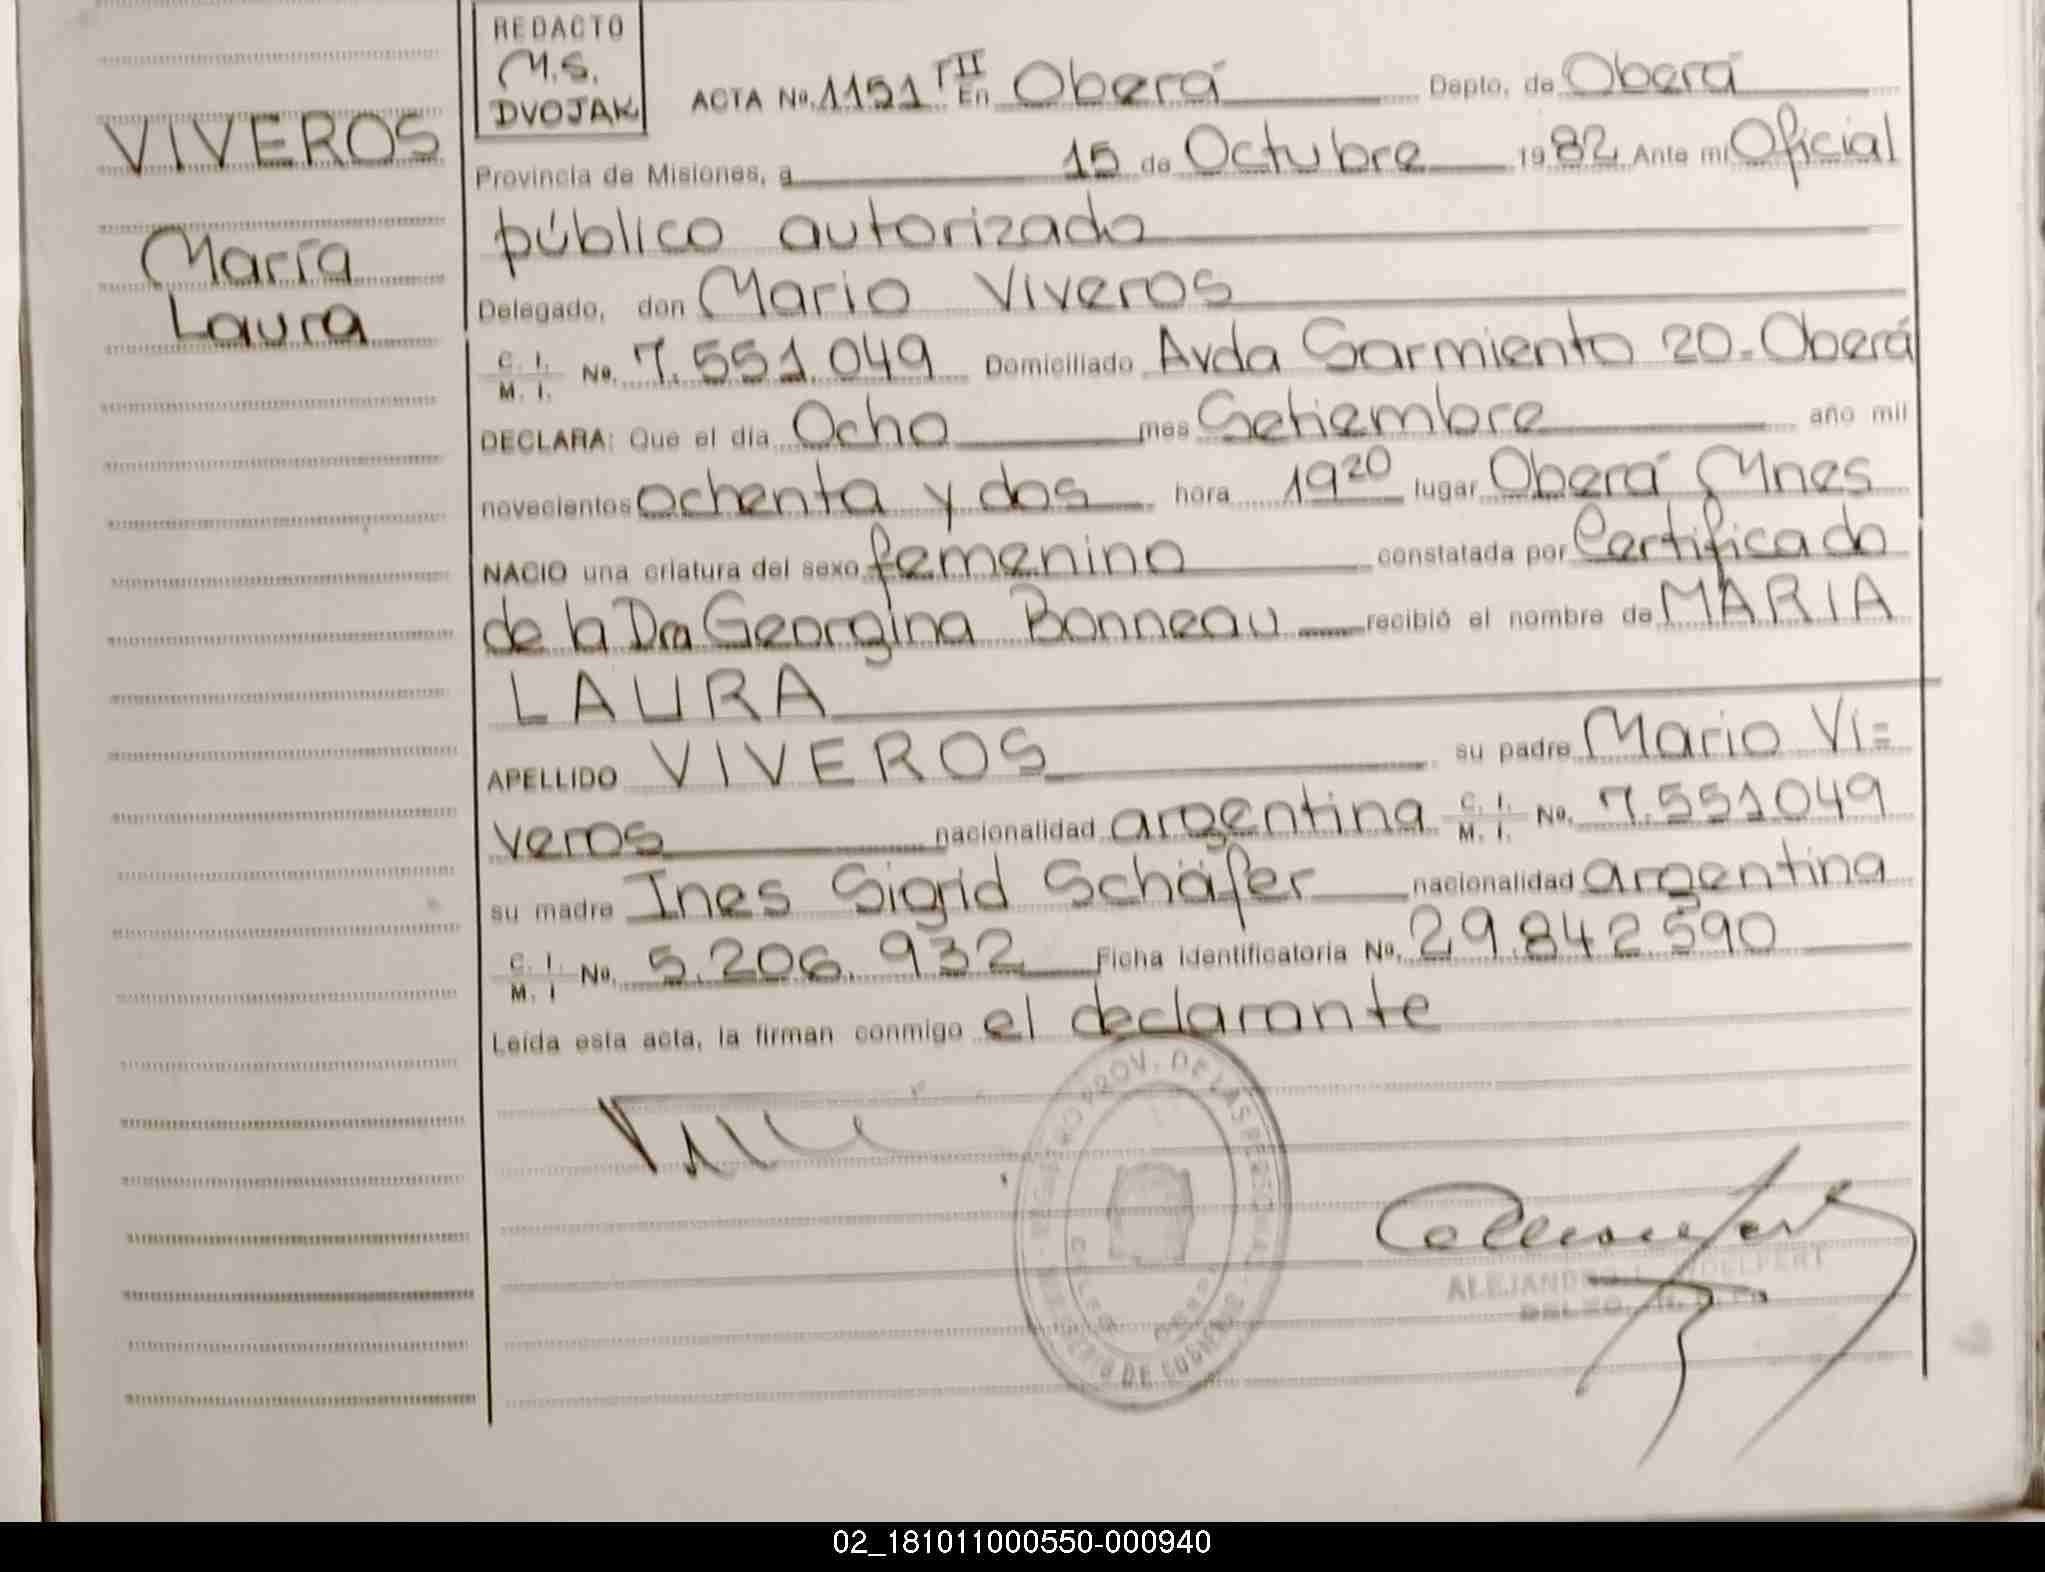 REDACTO
M.S.
DVOJAK
VIVEROS
María
Laura
ACTA No. 1151 TII En Oberá Depto. de Oberá
Provincia de Misiones, a 15 de Octubre 1982 Ante mi Oficial
público autorizado
Delegado, don Mario Viveros
C. I. M. I. No. 7.551.049 Domiciliado Avda Sarmiento 20-Oberá
DECLARA: Que el día Ocho mes Setiembre año mil
novecientos ochenta y dos hora 19 20 lugar Oberá Mnes
NACIO una criatura del sexo femenino constatada por Certificado
de la Dra Georgina Bonneau recibió el nombre de MARIA
LAURA
APELLIDO VIVEROS su padre Mario Vi=
veros nacionalidad argentina C. I. M. I. No. 7.551049
su madre Ines Sigrid Schäfer nacionalidad argentina
C. I. M. I No. 5.206.932 Ficha identificatoria No. 29.842.590
Leída esta acta, la firman conmigo el declarante
PROV. DE LAS PERSONAS
ALEJANDRO
02_181011000550-000940